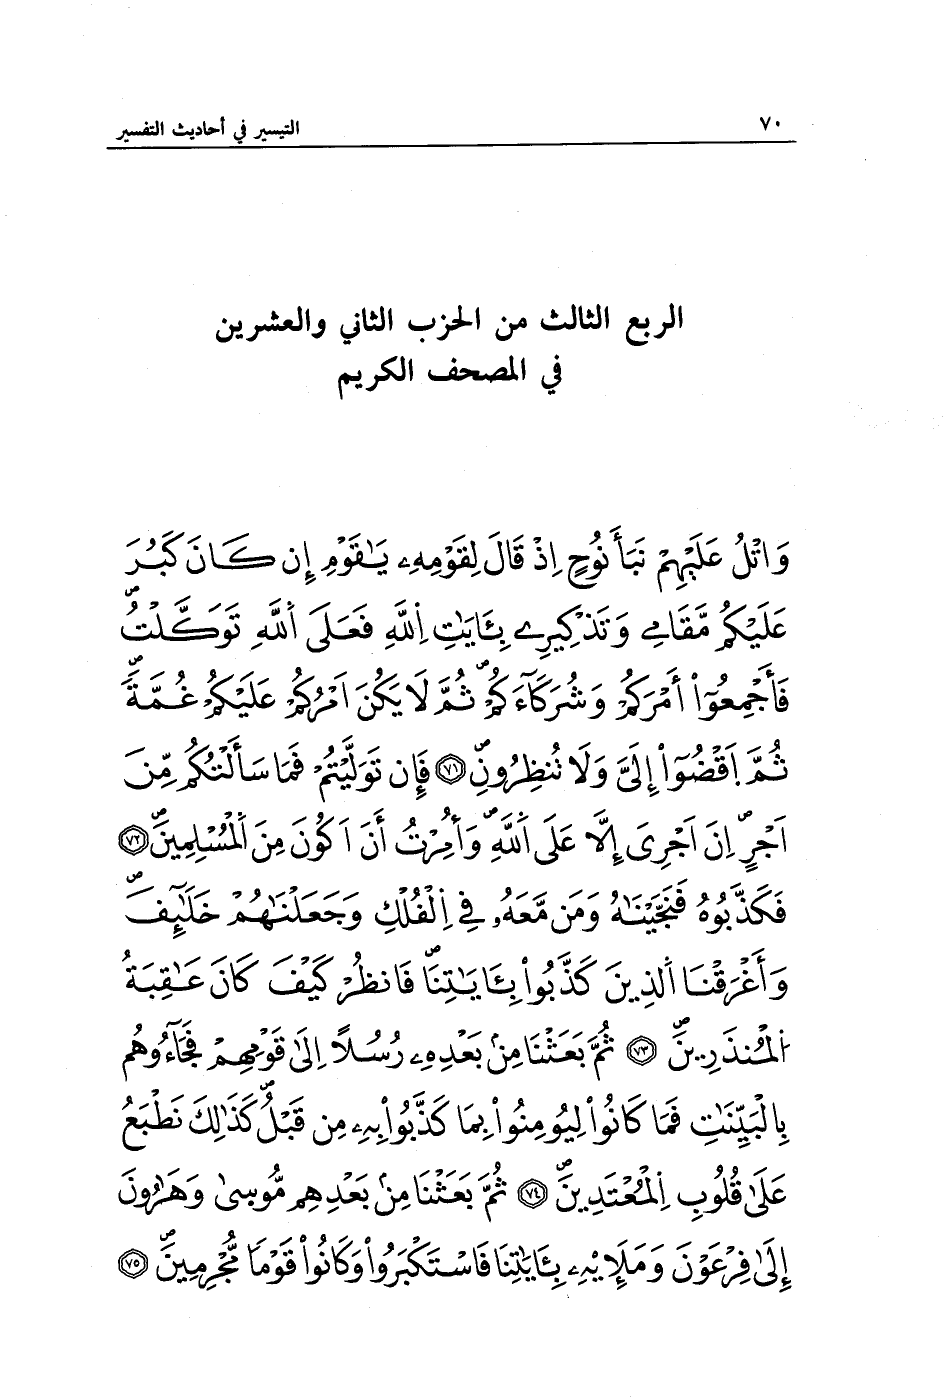 ٧٠
التيسير في أحاديث التفسير
الربع الثالث من الحزب الثاني والعشرين
في المصحف الكريم
وَاتْلُ عَلَيْهِمْ نَبَأَ نُوحٍ اِذْ قَالَ لِقَوْمِهِۦ يَـٰقَوْمِ إِن كَانَ كَبُرَ
عَلَيْكُم مَّقَامِے وَتَذْكِيرِے بِـَٔايَـٰتِ اِ۬للَّهِ فَعَلَى اَ۬للَّهِ تَوَكَّلْتُۖ
فَأَجْمِعُوٓاْ أَمْرَكُمْ وَشُرَكَآءَكُمْۖ ثُمَّ لَا يَكُنَ اَمْرُكُمْ عَلَيْكُمْ غُمَّةٗۖ
ثُمَّ اَ۪قْضُوٓاْ إِلَىَّ وَلَا تُنظِرُونِۖ ٧١ فَإِن تَوَلَّيْتُمْ فَمَا سَأَلْتُكُم مِّنَ
اَجْرٍۖ اِنَ اَجْرِىَ إِلَّا عَلَى اَ۬للَّهِۖ وَأُمِرْتُ أَنَ اَكُونَ مِنَ اَ۬لْمُسْلِمِينَۖ ٧٢
فَكَذَّبُوهُ فَنَجَّيْنَـٰهُ وَمَن مَّعَهُۥ فِے اِ۬لْفُلْكِ وَجَعَلْنَـٰهُمْ خَلَـٰٓئِفَۖ
وَأَغْرَقْنَا اَ۬لذِينَ كَذَّبُواْ بِـَٔايَـٰتِنَاۖ فَانظُرْ كَيْفَ كَانَ عَـٰقِبَةُ
اُ۬لْمُنذَرِينَۖ ٧٣ ثُمَّ بَعَثْنَا مِنۢ بَعْدِهِۦ رُسُلًا اِلَىٰ قَوْمِهِمْ فَجَآءُوهُم
بِالْبَيِّنَـٰتِ فَمَا كَانُواْ لِيُومِنُواْ بِمَا كَذَّبُواْ بِهِۦ مِن قَبْلُۖ كَذَٰلِكَ نَطْبَعُ
عَلَىٰ قُلُوبِ اِ۬لْمُعْتَدِينَۖ ٧٤ ثُمَّ بَعَثْنَا مِنۢ بَعْدِهِم مُّوسِىٰ وَهَـٰرُونَ
إِلَىٰ فِرْعَوْنَ وَمَلَإِيْهِۦ بِـَٔايَـٰتِنَا فَاسْتَكْبَرُواْ وَكَانُواْ قَوْمٗا مُّجْرِمِينَۖ ٧٥